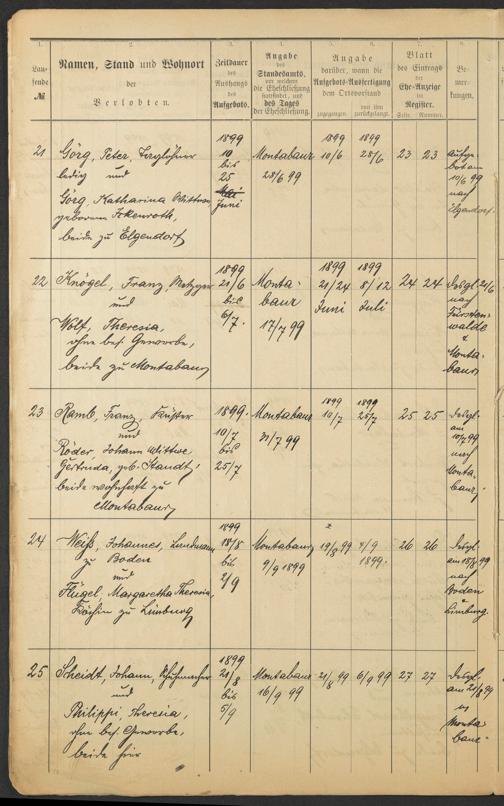 1.
2.
3.
4.
5.
6.
8.
9.
Lau-
fende
№
Namen, Stand und Wohnort
der
Verlobten.
Zeitdauer
des
Aushangs
des
Aufgebots.
Angabe
des
Standesamts,
vor welchem
die Eheschließung
stattfindet, und
des Tages
der Eheschließung.
Angabe
darüber, wann die
Aufgebots-Ausfertigung
dem Ortsvorstand
zugegangen.
von ihm
zurückgelangt.
Blatt
des Eintrags
der
Ehe-Anzeige
im
Register.
Seite. Nummer.
Be-
mer-
kungen.
21
Görg, Peter, Taglöhner
ledig und
Görg, Katharina Wittwe
geborene Ickenroth,
beide zu Elgendorf
1899
10
bis
25
Mai
Juni
Montabaur
28/6 99
1899
10/6
1899
25/6
23 23
Aufge-
bot am
10/6 99
nach
Elgendorf.
22
Knögel, Franz, Metzger
und
Wolf, Theresia,
ohne bes. Gewerbe,
beide zu Montabaur
1899
21/6
bis
6/7.
Monta-
baur
17/7 99
1899
21/24
Juni
1899
8/12
Juli
24 24
Desgl. 21/6
nach
Fürsten-
walde
&
Monta-
baur
23
Ramb, Franz, Küster
und
Röder, Johann Wittwe,
Gertruda, geb. Staudt,
beide wohnhaft zu
Montabaur
1899.
10/7
bis
25/7
Montabaur
31/7 99
1899
10/7
1899
25/7
25 25
Desgl.
am
10/7 99
nach
Monta-
baur
24
Weiß, Johannes, Landmann
zu Boden
und
Flügel, Margaretha Theresia,
Köchin zu Limburg
1899
18/8
bis
2/9
Montabaur
9/9 1899
19/8 99
4/9
1899.
26 26
Desgl.
am 18/8 99
nach
Boden
u
Limburg.
25
Scheidt, Johann, Schuhmacher
und
Philippi, Theresia,
ohne bes. Gewerbe,
beide hier
1899
21/8
bis
5/9
Montabaur
16/9 99
21/8 99
6/9 99
27 27
Desgl.
am 21/8 99
Monta-
baur